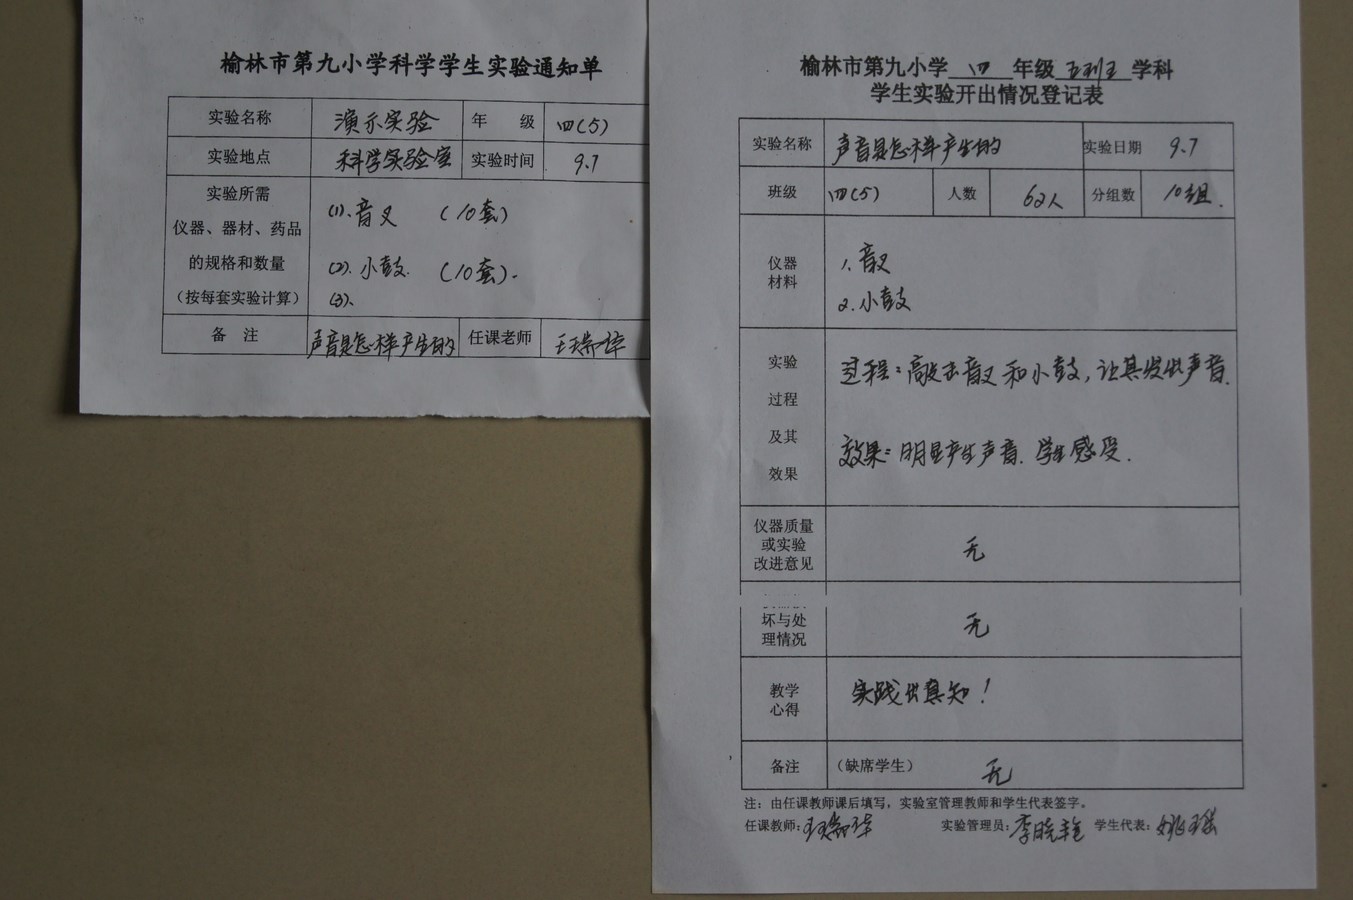 榆林市第九小学科学学生实验通知单
实验名称 演示实验 年 级 四(5)
实验地点 科学实验室 实验时间 9.7
实验所需
仪器、器材、药品
的规格和数量
(按每套实验计算)
(1).音叉 (10套)
(2).小鼓. (10套).
(3).
备 注 声音是怎样产生的 任课老师
榆林市第九小学 四 年级 五班 学科
学生实验开出情况登记表
实验名称 声音是怎样产生的 实验日期 9.7
班级 四(5) 人数 62人 分组数 10组.
仪器
材料
1.音叉
2.小鼓
实验
过程
及其
效果
过程:敲击音叉和小鼓,让其发出声音.
效果:明显产生声音.学生感受.
仪器质量
或实验
改进意见
无
坏与处
理情况
无
教学
心得
实践出真知!
备注 (缺席学生) 无
注:由任课教师课后填写,实验室管理教师和学生代表签字。
任课教师: 实验管理员:李晓艳 学生代表: